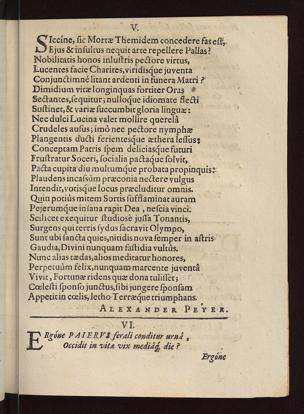 V.
SIccine, sic Mortæ Themidem concedere fas est,
Ejus & insultus nequit arte repellere Pallas?
Nobilitatis honos inlustris pectore virtus,
Lucentes facie Charites, viridisque juventa
Conjunctimnè litant ardenti in funera Matri?
Dimidium vitæ longinquas fortiter Oras
Sectantes, sequitur; nulloque idiomate flecti
Sustinet, & variæ succumbit gloria linguæ:
Nec dulci Lucina valet mollire querelâ
Crudeles ausus; imò nec pectore nymphæ
Plangentis ducti ferientesque æthera lessus:
Conceptam Patris spem deliciasque futuri
Frustratur Soceri, socialia pactaque solvit,
Pacta cupita diu multumque probata propinquis:
Plaudens incassùm præconia nectere vulgus
Intendit, votisque locus præcluditur omnis.
Quin potiùs mitem Sortis sufflaminat auram
Pejerumque insana rapit Dea, nescia vinci.
Scilicet exequitur studiosè jussa Tonantis,
Surgens qui terris sydus sacravit Olympo,
Sunt ubi sancta quies, nitidis nova semper in astris
Gaudia, Divini nunquam fastidia vultûs.
Nunc alias tædas, alios meditatur honores,
Perpetuùm felix, nunquam marcente juventâ
Vivit, Fortunæ ridens quæ dona tulisset;
Cœlesti sponso junctus, sibi jungere sponsam
Appetit in cœlis, letho Terræque triumphans.
ALEXANDER PEYER.
VI.
ERgóne PAIERVS ferali conditur urnâ,
Occidit in vitæ vix mediâq́; die?
Ergóne